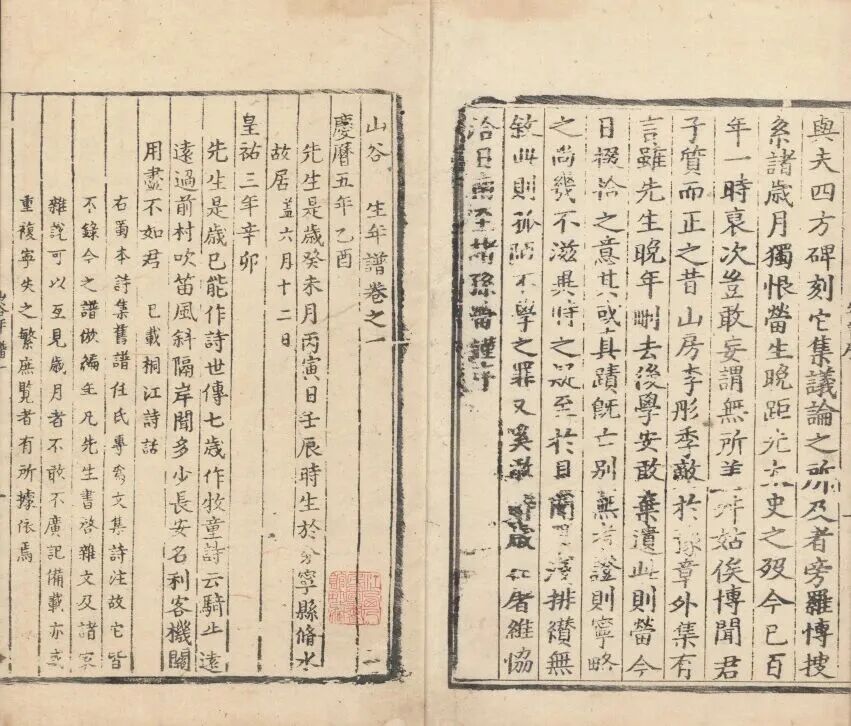 與夫四方碑刻它集議論之所及者旁羅愽搜
系諸歲月獨恨㽦生晚距史之歿今已百
年一時裒次豈敢妄謂無所姑俟博聞君
子質而正之昔山房李彤季敵於豫章外集有
言雖先生晚年刪去後學安敢棄遺此則㽦今
日掇拾之意其或真蹟旣亡別無考證則寧略
之尚幾不滋異時之疑至於目淺排纘無
敘此則孤陋不學之罪又奚敢辭歲屠維協
洽日南至諸孫㽦謹序
山谷生年譜卷之一
慶曆五年乙酉
先生是歲癸未月丙寅日壬辰時生於分寧縣脩水
故居蓋六月十二日
皇祐三年辛卯
先生是歲已能作詩世傳七歲作牧童詩云騎牛遠
遠過前村吹笛風斜隔岸聞多少長安名利客機關
用盡不如君 已載桐江詩話
右蜀本詩集舊譜任氏專為文集詩注故它皆
不錄今之譜倣編年凡先生書啓雜文及諸家
雜說可以互見歲月者不敢不廣記備載亦或
重複寧失之繁庶覽者有所據依焉